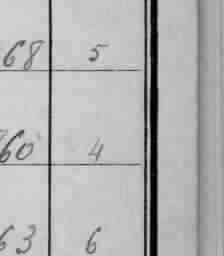 68 5
60 4
63 6